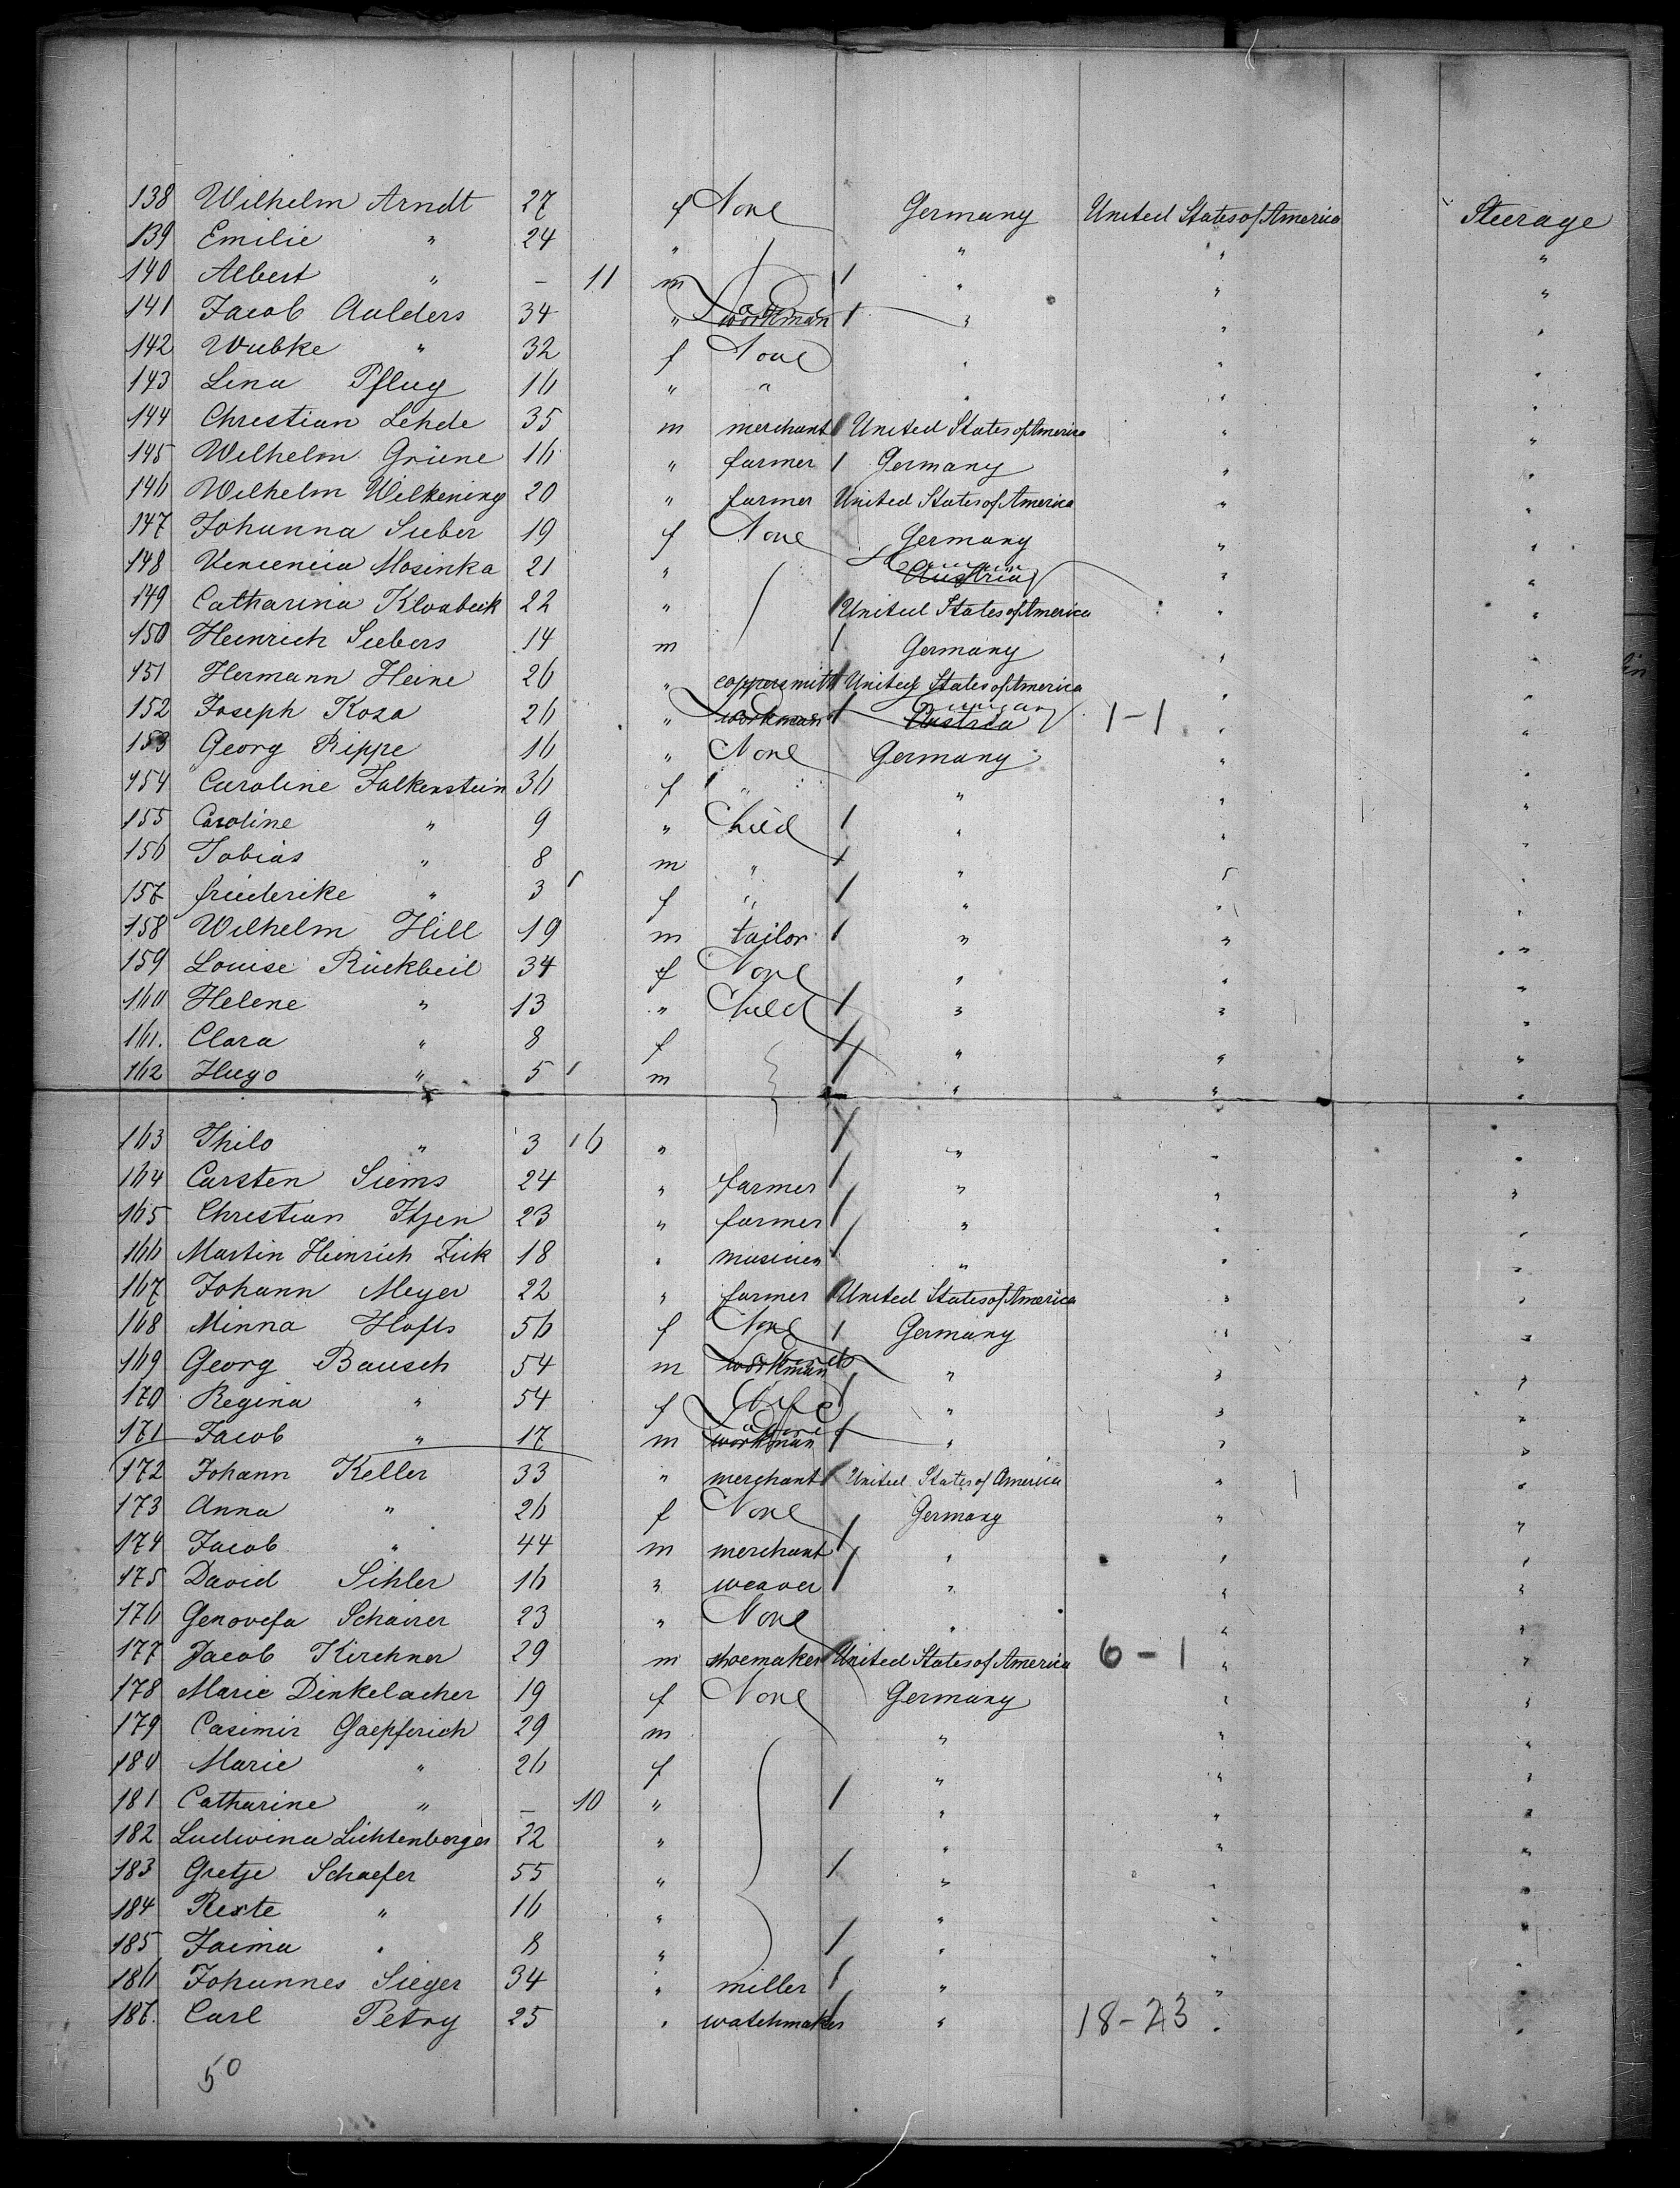 138 Wilhelm Arndt 27 f None Germany United States of America Steerage
139 Emilie " 24 " " " "
140 Albert " — 11 m " " "
141 Jacob Aulders 34 " workman " " "
142 Wubke " 32 f None " " "
143 Lena Pflug 16 " " " " "
144 Christian Lehde 35 m merchant United States of America " "
145 Wilhelm Grüene 16 " farmer Germany " "
146 Wilhelm Wilkening 20 " farmer United States of America " "
147 Johanna Sieber 19 f None Germany " "
148 Mosinka 21 " Austria " "
149 Catharina 22 " United States of America " "
150 Heinrich Siebers 14 m Germany " "
151 Hermann Heine 26 " coppersmith United States of America " "
152 Joseph Koza 26 " workman Austria 1-1 " "
153 Georg Rippe 16 " None Germany " "
154 Caroline Falkenstein 36 f " " " "
155 Caroline " 9 " Child " " "
156 Tobias " 8 m " " " "
157 friederike " 3 f " " " "
158 Wilhelm Hill 19 m tailor " " "
159 Louise Rückbeil 34 f None " " "
160 Helene " 13 " Child " " "
161. Clara " 8 f " " "
162 Hugo " 5 m " " "
163 Thilo " 3 6 " " " "
164 Carsten Siems 24 " farmer " " "
165 Christian Itjen 23 " farmer " " "
166 Martin Heinrich Zick 18 " musicien " " "
167 Johann Meyer 22 " farmer United States of America " "
168 Minna Hofts 56 f None Germany " "
169 Georg Bausch 54 m workman " " "
170 Regina " 54 f Wife " " "
171 Jacob " 17 m workman " " "
172 Johann Keller 33 " merchant United States of America " "
173 Anna " 26 f None Germany " "
174 Jacob " 44 m merchant " " "
175 David Sihler 16 " weaver " " "
176 Genovefa Schairer 23 " None " " "
177 Jacob Kirchner 29 m shoemaker United States of America 6-1 " "
178 Marie Dinkelacher 19 f None Germany " "
179 Casimir Gaepferich 29 m " " "
180 Marie " 26 f " " "
181 Catharine " — 10 " " " "
182 Ludwina Lichtenberger 22 " " " "
183 Gretje Schaefer 55 " " " "
184 Reste " 16 " " " "
185 Faima " 8 " " " "
186 Johannes Sieger 34 " miller " " "
187. Carl Petry 25 " watchmaker " 18-23 " "
50